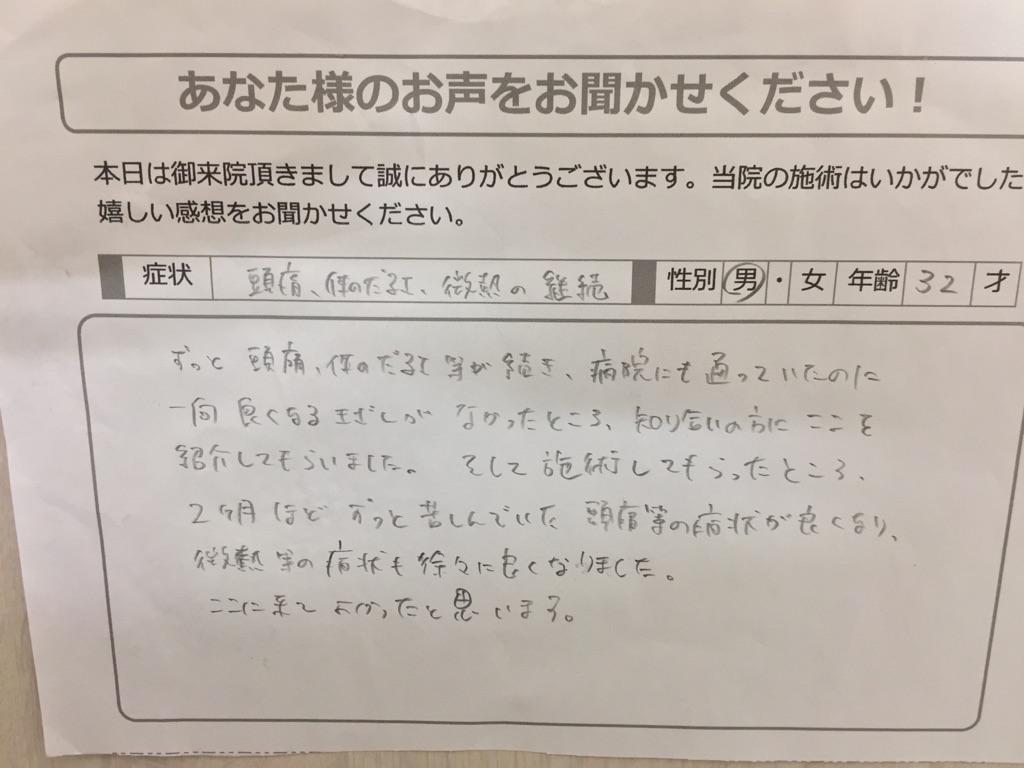 あなた様のお声をお聞かせください！
本日は御来院頂きまして誠にありがとうございます。当院の施術はいかがでした
嬉しい感想をお聞かせください。
症状 頭痛、体のだるさ、微熱の継続 性別 男・女 年齢 32 才
ずっと頭痛、体のだるさ等が続き、病院にも通っていたのに
一向良くなるきざしがなかったところ、知り合いの方にここを
紹介してもらいました。そして施術してもらったところ、
2ヶ月ほどずっと苦しんでいた頭痛等の病状が良くなり、
微熱等の病状も徐々に良くなりました。
ここに来てよかったと思います。